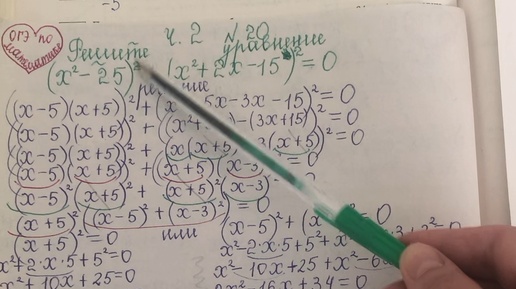 -5
ОГЭ ПО математике
ч. 2 № 20
Решите уравнение
(x²-25)² (x²+2x-15)²=0
((x-5)(x+5))²+(x 5x-3x-15)²=0
((x-5)(x+5))²+((x² )-(3x+15))²=0
((x-5)(x+5))²+(x(x+5) (x+5))²=0
((x-5)(x+5))²+((x+5)(x-3 =0
(x-5)²(x+5)²+(x+5)²(x-3)²
(x+5)²((x-5)²+(x-3)² =0
(x+5)²=0 или (x-5)²+(x =0
x²+2·x·5+5²=0 x²-2·x·5+5²+x² 3+3²=0
x²+10x+25=0 x²-10x+25+x²-6
2x²-16x+34=0